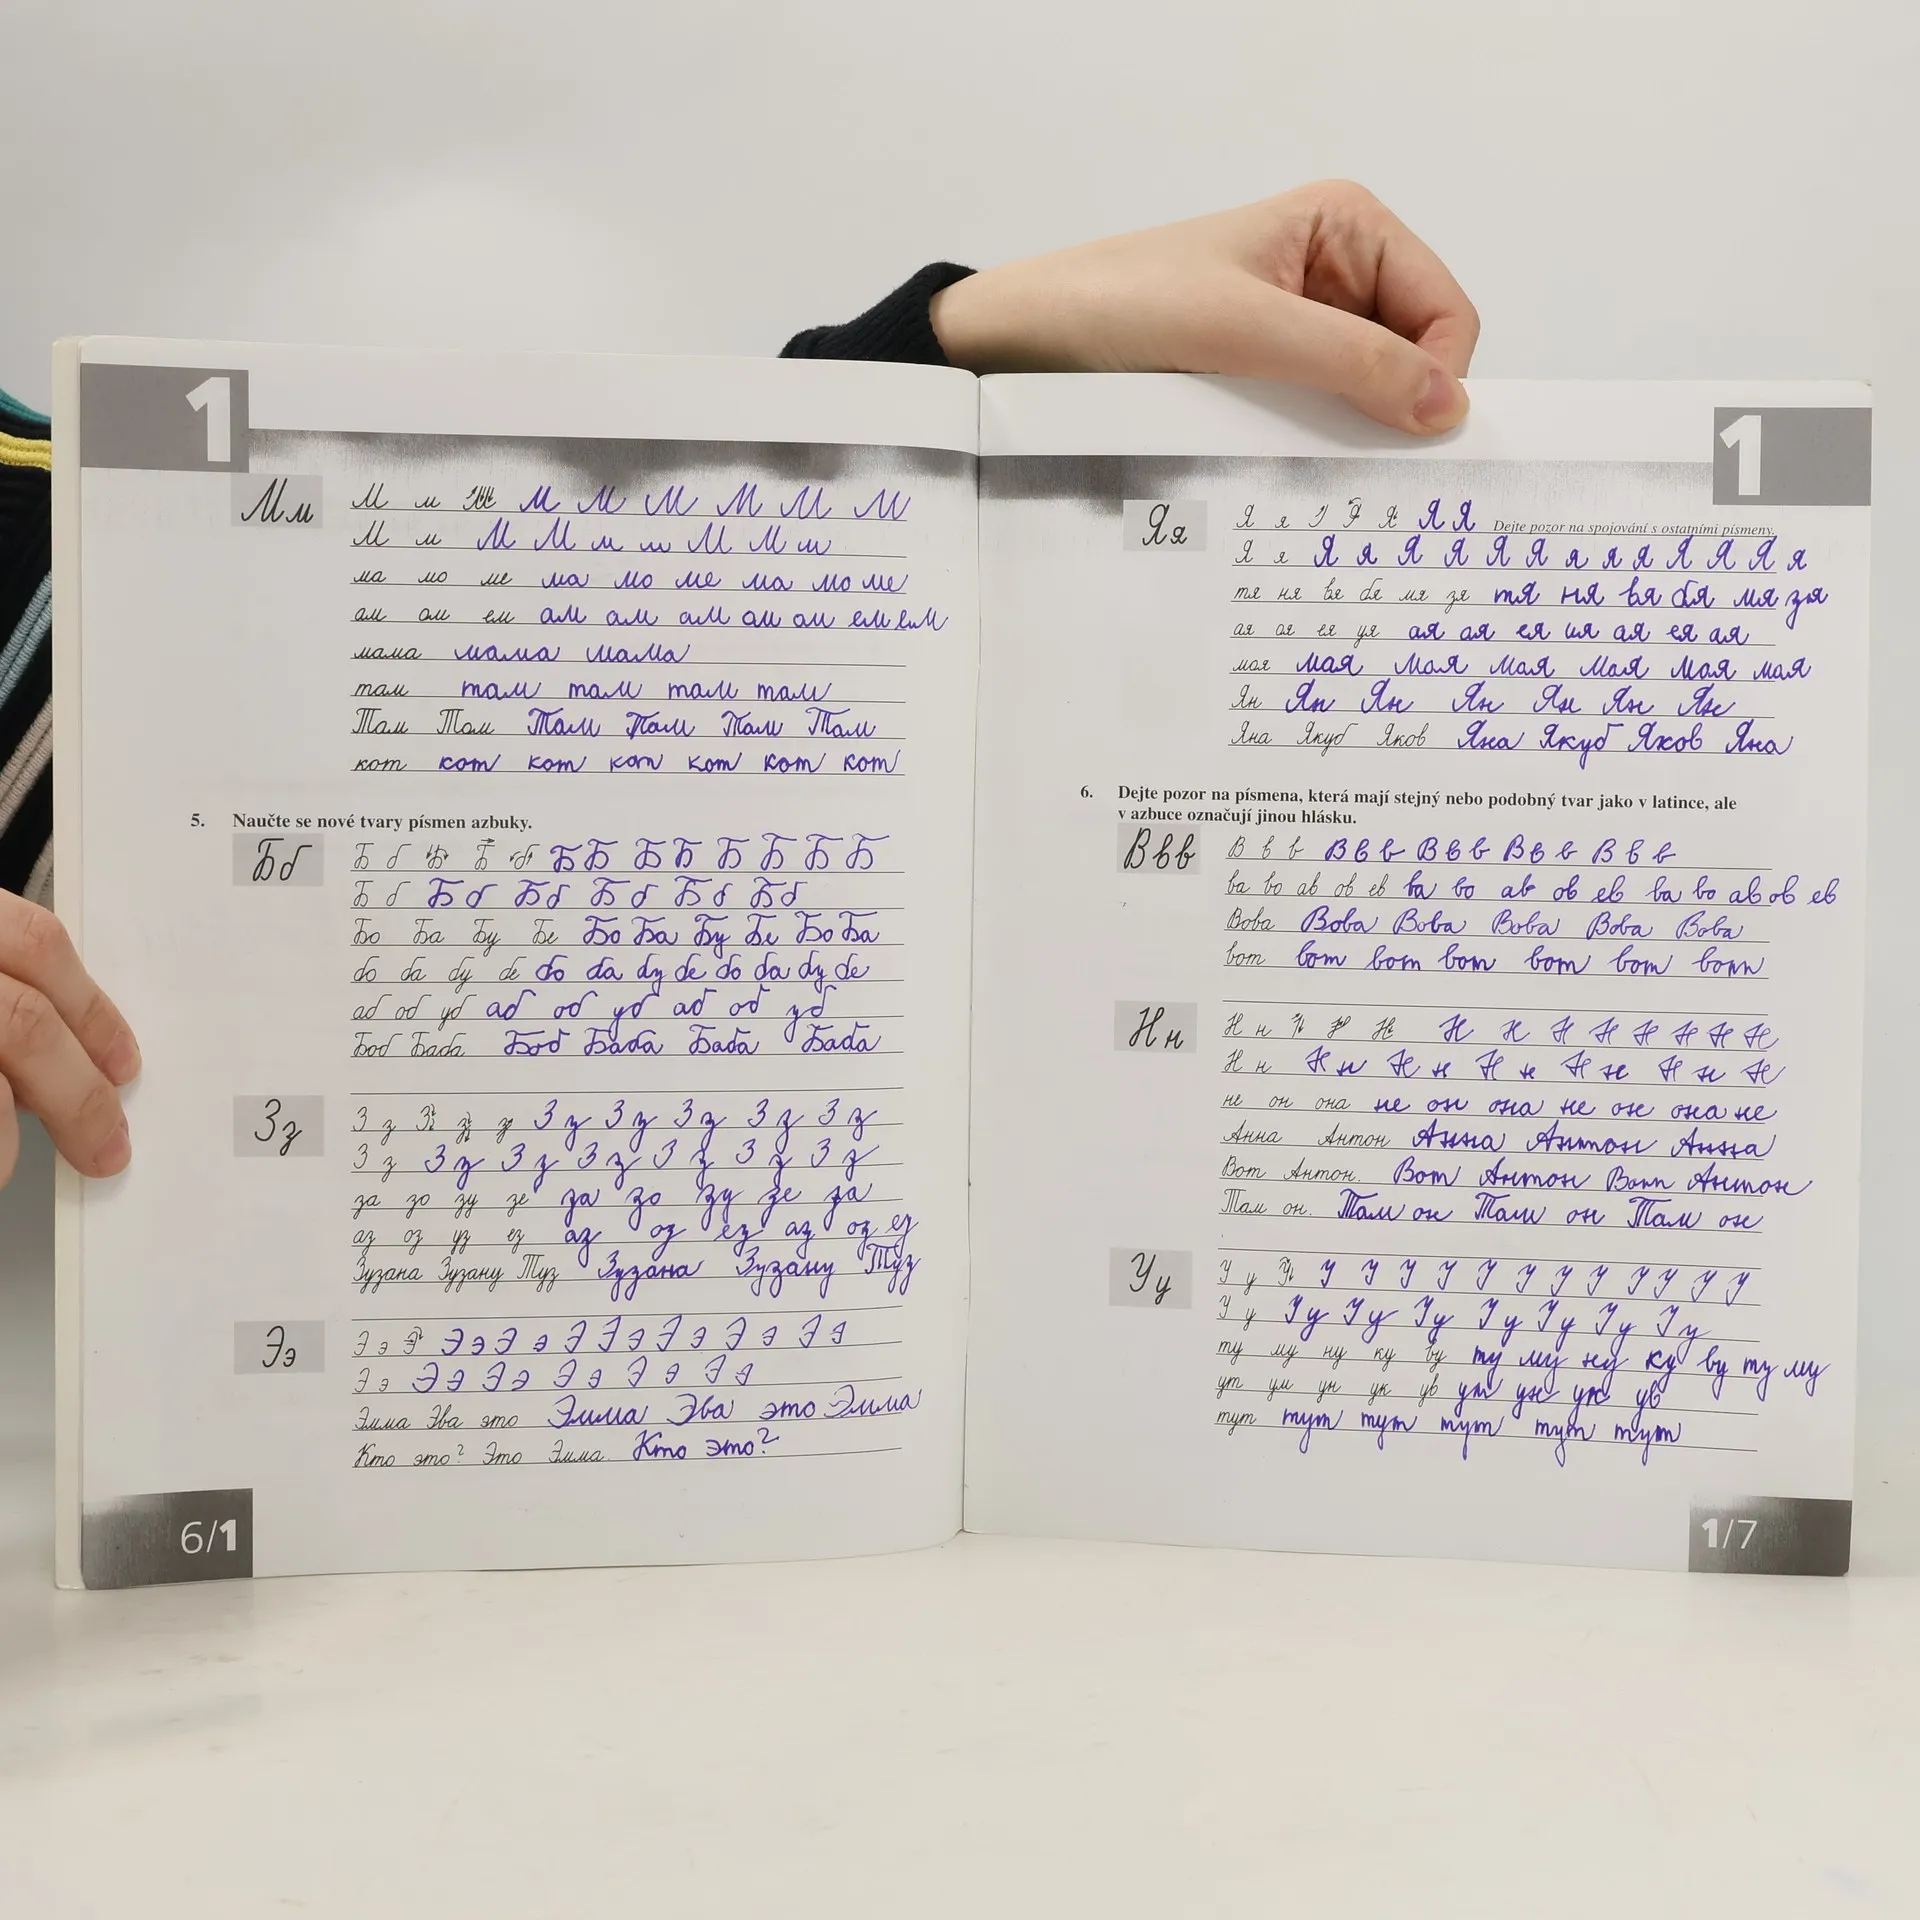 1
Мм М м М М М М М М
М м М М м м М М м
ма мо ме ма мо ме ма мо ме
ам ом ем ам ам ам ам ам ем ем
мама мама мама
там там там там там
Там Том Там Там Там Там
кот кот кот кот кот кот кот
5. Naučte se nové tvary písmen azbuky.
Бб Б б Б Б б Б Б Б Б Б Б Б Б
Б б Б б Б б Б б Б б Б б
Бо Ба Бу Бе Бо Ба Бу Бе Бо Ба
бо ба бу бе бо ба бу бе бо ба бу бе
аб об уб аб об уб аб об уб
Боб Баба Боб Баба Баба Баба
Зз З з З з з З з З з З з З з З з
З з З з З з З з З з З з З з
за зо зу зе за зо зу зе за
аз оз уз ез аз оз ез аз оз ез
Зузана Зузану Туз Зузана Зузану Туз
Ээ Э э Э Э э Э э Э Э э Э э Э э Э э
Э э Э э Э э Э э Э э Э э
Эмма Эва это Эмма Эва это Эмма
Кто это? Это Эмма. Кто это?
6/1
1
Яя Я я Я Я Я Я Dejte pozor na spojování s ostatními písmeny.
Я я Я я Я Я Я Я я я я Я Я Я я
тя ня вя бя мя зя тя ня вя бя мя зя
ая оя ея уя ая ая ея ия ая ея ая
моя мая моя моя моя моя моя
Ян Ян Ян Ян Ян Ян Ян
Яна Якуб Яков Яна Якуб Яков Яна
6. Dejte pozor na písmena, která mají stejný nebo podobný tvar jako v latince, ale
v azbuce označují jinou hlásku.
Ввв В в в В в в В в в В в в В в в
ва во ав ов ев ва во ав ов ев ва во ав ов ев
Вова Вова Вова Вова Вова Вова
вот вот вот вот вот вот вот
Нн Н н Н Н Н Н Н Н Н Н Н Н
Н н Н н Н н Н н Н н Н н Н
не он она не он она не он она не
Анна Антон Анна Антон Анна
Вот Антон. Вот Антон Вот Антон
Там он. Там он Там он Там он
Уу У у У У У У У У У У У У У У У
У у У у У у У у У у У у У у У у
ту му ну ку ву ту му ну ку ву ту му
ут ум ун ук ув ут ун ук ув
тут тут тут тут тут тут
1/7